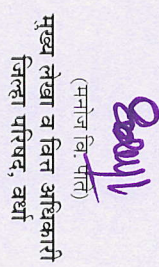 (मनोज वि. पाते)
मुख्य लेखा व वित्त अधिकारी
जिल्हा परिषद, वर्धा